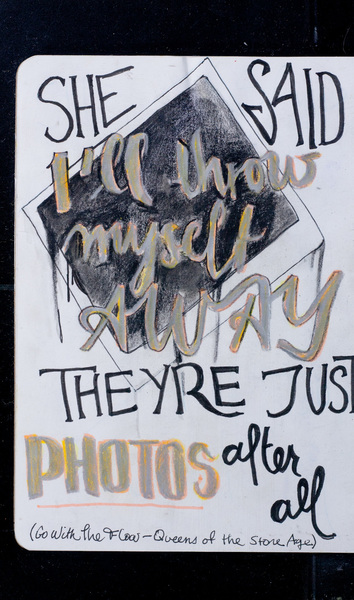 SHE SAID
I'll throw
myself
AWAY
THEYRE JUST
PHOTOS after
all
(Go With The Flow - Queens of the Stone Age)